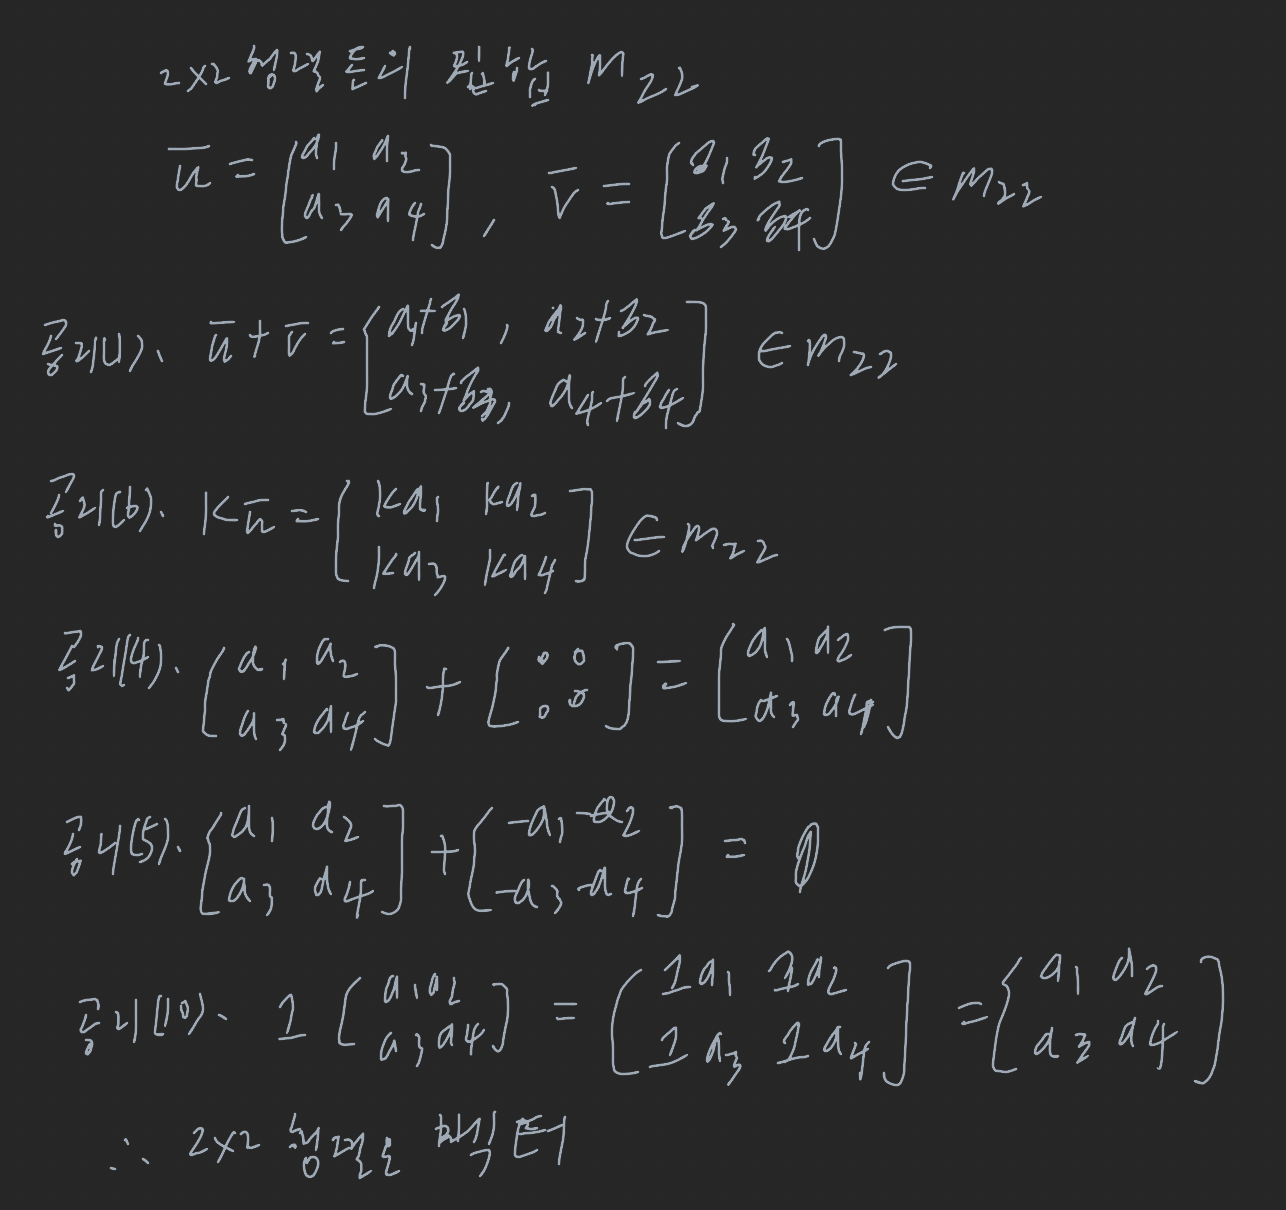 2×2 행렬 들의 집합 M₂₂
ū = [a₁ a₂ / a₃ a₄], v̄ = [b₁ b₂ / b₃ b₄] ∈ M₂₂
공리(1). ū + v̄ = [a₁+b₁, a₂+b₂ / a₃+b₃, a₄+b₄] ∈ M₂₂
공리(6). kū = [ka₁ ka₂ / ka₃ ka₄] ∈ M₂₂
공리(4). [a₁ a₂ / a₃ a₄] + [0 0 / 0 0] = [a₁ a₂ / a₃ a₄]
공리(5). [a₁ a₂ / a₃ a₄] + [-a₁ -a₂ / -a₃ -a₄] = 0
공리(10). 1 [a₁ a₂ / a₃ a₄] = [1a₁ 1a₂ / 1a₃ 1a₄] = [a₁ a₂ / a₃ a₄]
∴ 2×2 행렬은 벡터